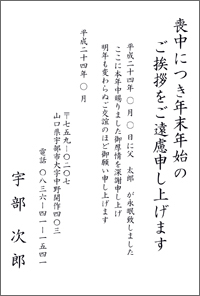 喪中につき年末年始の
ご挨拶をご遠慮申し上げます
平成二十四年 〇月 〇日に父 太郎 が永眠致しました
ここに本年中賜りました御厚情を深謝申し上げ
明年も変わらぬご交誼のほど御願い申し上げます
平成二十四年 〇月
〒七五九−〇二〇七
山口県宇部市大字中野開作四〇三
電話 〇八三六−四一−一五四一
宇部 次郎